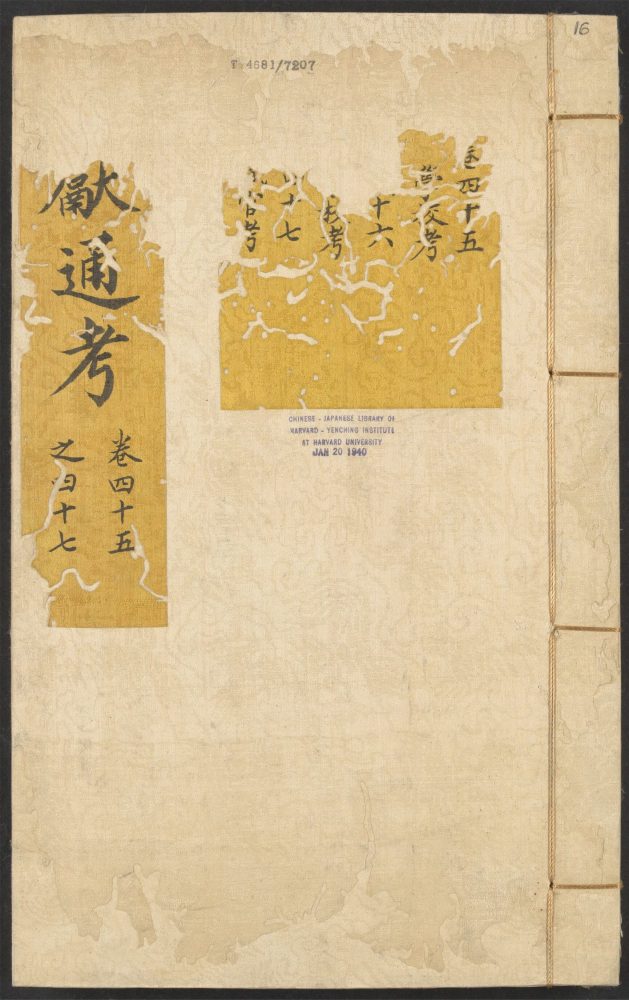 16
T 4681/7207
卷四十五
校考
十六
校考
十七
官考
獻通考
卷四十五
之四十七
CHINESE - JAPANESE LIBRARY OF
HARVARD - YENCHING INSTITUTE
AT HARVARD UNIVERSITY
JAN 20 1940